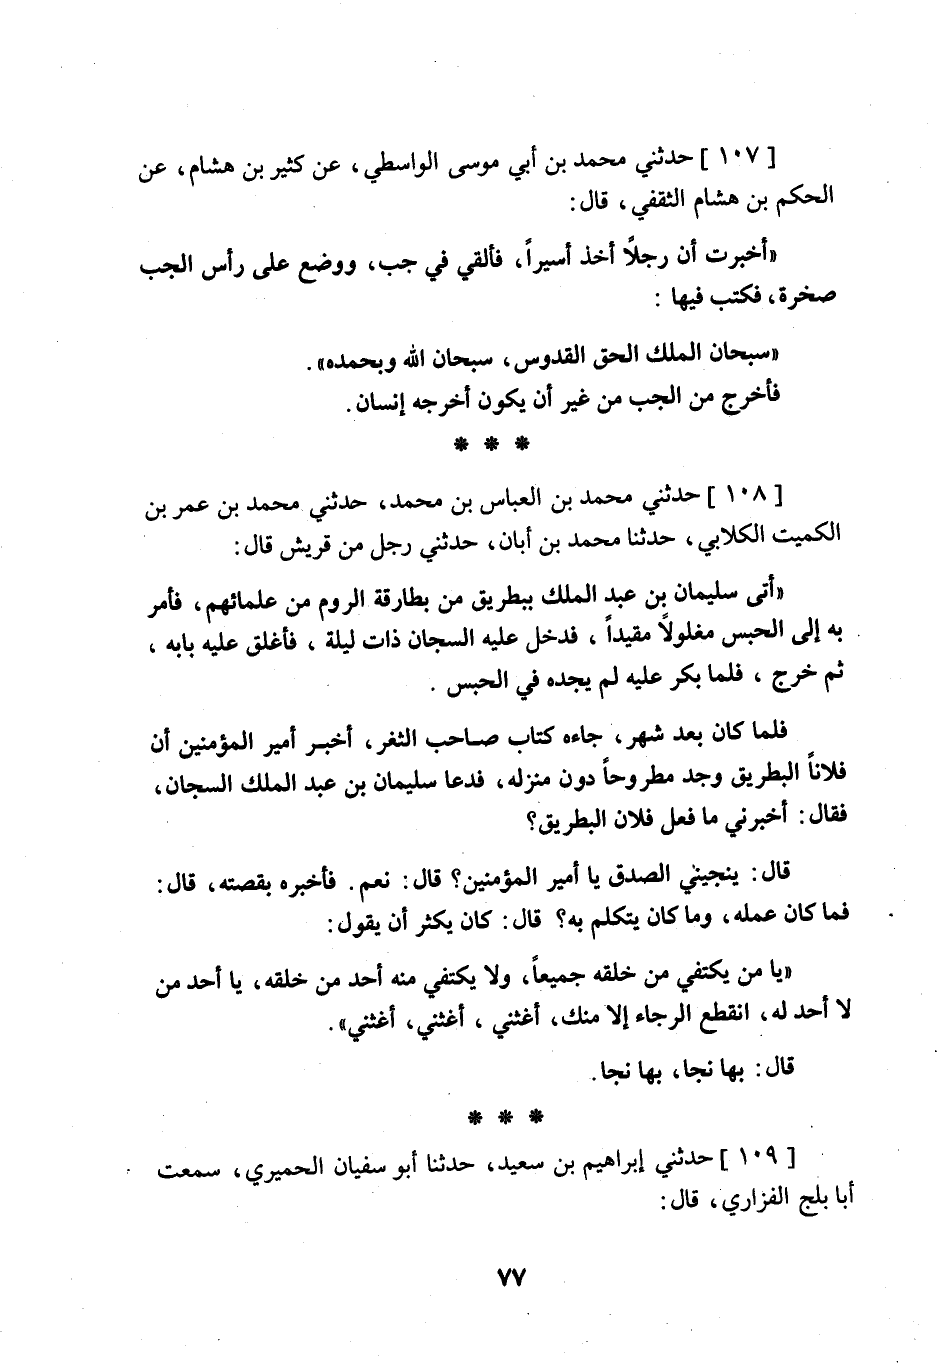 [ ١٠٧ ] حدثني محمد بن أبي موسى الواسطي، عن كثير بن هشام، عن
الحكم بن هشام الثقفي، قال:
«أخبرت أن رجلاً أخذ أسيراً، فألقي في جب، ووضع على رأس الجب
صخرة، فكتب فيها :
«سبحان الملك الحق القدوس، سبحان الله وبحمده».
فأخرج من الجب من غير أن يكون أخرجه إنسان.
* * *
[ ١٠٨ ] حدثني محمد بن العباس بن محمد، حدثني محمد بن عمر بن
الكميت الكلابي، حدثنا محمد بن أبان، حدثني رجل من قريش قال:
«أتى سليمان بن عبد الملك ببطريق من بطارقة الروم من علمائهم، فأمر
به إلى الحبس مغلولاً مقيداً ، فدخل عليه السجان ذات ليلة ، فأغلق عليه بابه ،
ثم خرج ، فلما بكر عليه لم يجده في الحبس .
فلما كان بعد شهر، جاءه كتاب صاحب الثغر، أخبر أمير المؤمنين أن
فلاناً البطريق وجد مطروحاً دون منزله، فدعا سليمان بن عبد الملك السجان،
فقال: أخبرني ما فعل فلان البطريق؟
قال: ينجيني الصدق يا أمير المؤمنين؟ قال: نعم. فأخبره بقصته، قال:
فما كان عمله، وما كان يتكلم به؟ قال: كان يكثر أن يقول:
«يا من يكتفي من خلقه جميعاً، ولا يكتفي منه أحد من خلقه، يا أحد من
لا أحد له، انقطع الرجاء إلا منك، أغثني ، أغثني، أغثني».
قال: بها نجا، بها نجا.
* * *
[ ١٠٩ ] حدثني إبراهيم بن سعيد، حدثنا أبو سفيان الحميري، سمعت
أبا بلج الفزاري، قال:
٧٧